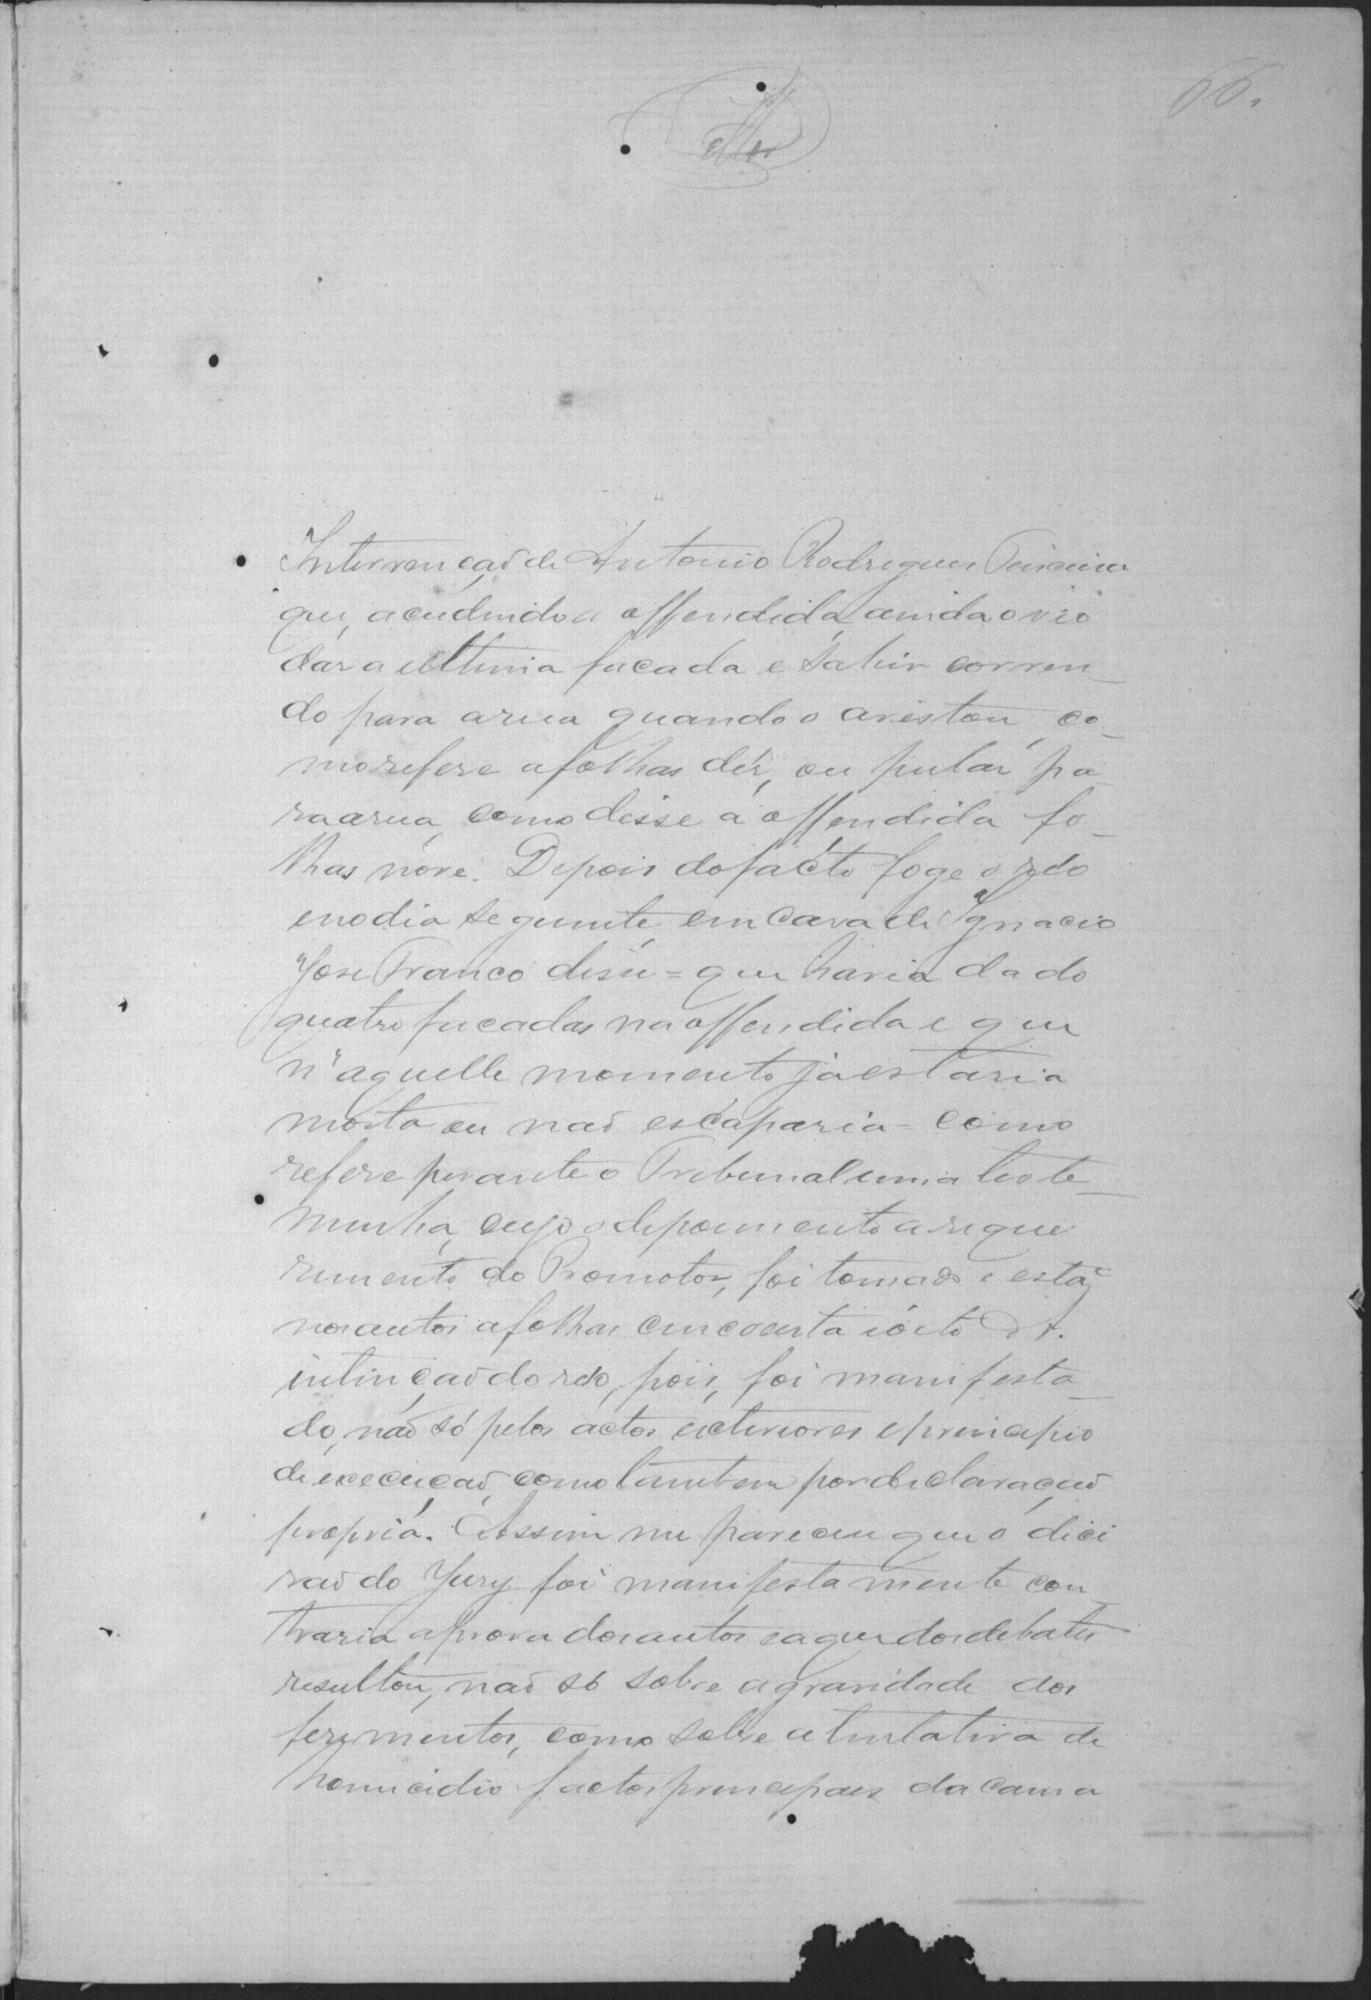 66.
Intervenção de Antonio Rodrigues Teixeira
que, acudindo a offendida, ainda o vio
dar a ultima facada e sahir corren_
do para a rua quando o avistou, co_
mo refere a folhas déz, ou pular pa
ra a rua, como disse a offendida fo_
lhas nove. Depois do facto foge o réo
e no dia seguinte em casa de Ignacio
José Franco disse = que havia dado
quatro facadas na offendida e que
n'aquelle momento já estaria
morta ou não escaparia = como
refere perante o Tribunal uma teste_
munha, cujo o depoimento a reque
rimento do Promotor, foi tomado e está
nos autos a folhas cincoenta e oito A
intinção do réo, pois, foi manifesta_
do, não só pelos actos exteriores e principio
de execução, como tambem por declaração
propria. Assim me pareceu que a dici
são do Jury foi manifestamente con_
traria a prova dos autos e a que dos debates
resultou, não só sobre a gravidade dos
ferimentos, como sobre a tentativa de
homicidio factos principaes da causa